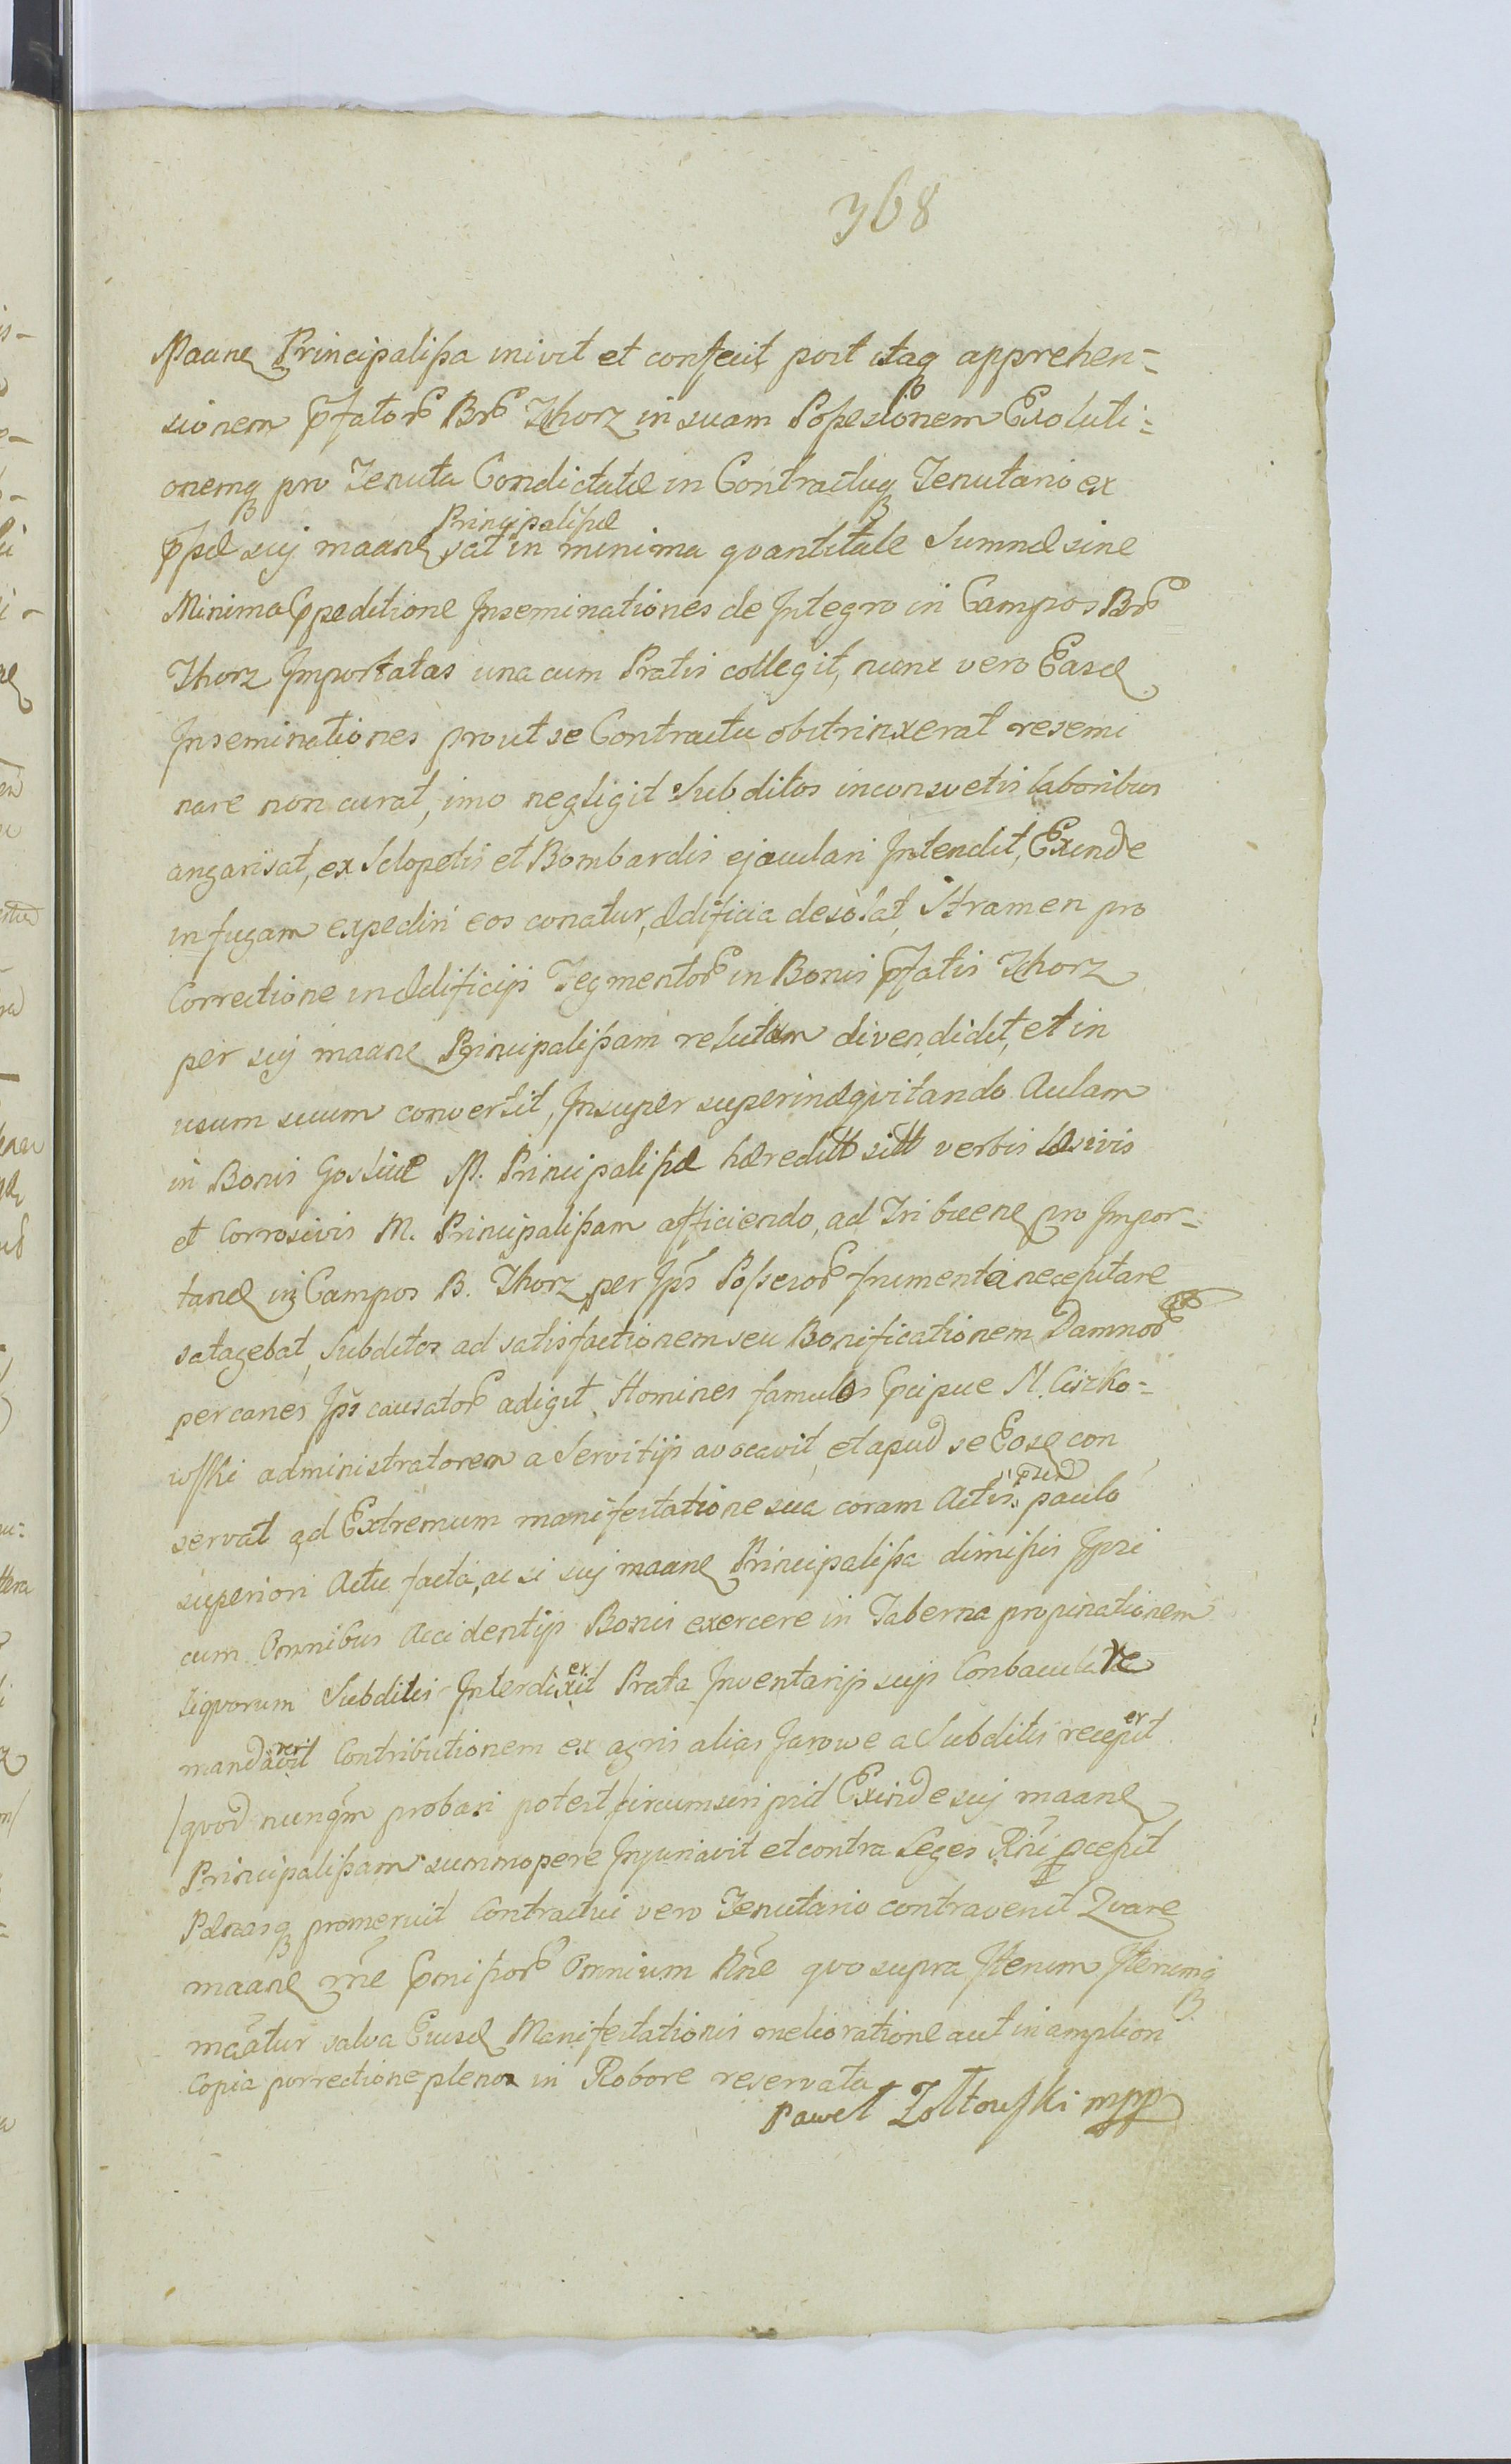 368
Maane Principalissa inivit et confecit post itaq apprehen-
sionem Pfator Br Thorz in suam Possesionem Exoluti-
onemq pro Tenuta Condictatæ in Contractuq Tenutario ex
Principalissæ
ppæ suj maane sat in minima qvantitate Summæ sine
Minima Expeditione Inseminationes de Integro in Campos Br
Thorz Importatas una cum Pratis collegit, nunc vero Easd
Inseminationes prout se Contractu obstrinxerat resemi
nare non curat, imo negligit Subditos inconsvetis laboribus
angarisat, ex Sclopetis et Bombardis ejaculari Intendit, Exinde
in fugam expediri eos conatur, ædificia desolat, Stramen pro
Correctione in ædificijs Tegmentor in Bonis Pfatis Thorz
per suj maane Principalissam relutum divendidit, et in
usum suum convertit, Insuper superinæqvitando Aulam
in Bonis M. Principalissæ hæreditt sitt verbis læsivis
et Corrosivis M. Principalissam afficiendo, ad Tribuene pro Impor-
tane in Campos B. Thorz per Ips Possesor frumenta necessitare
satagebat, Subditos ad satisfactionem seu Bonificationem Damnor
per canes Ips causator adigit, Homines famulos Pcipue M. Ciszko-
wski administratorem a Servitijs avocavit, et apud se Eosd con
servat ad Extremum manifestatione sua coram Actis paulo
superiori Actu facta, ac si suj maane Principalissa dimissis Ipsi
cum Omnibus Accidentijs Bonis exercere in Taberna propinationem
liqvorum Subditis Interdixit er Prata Inventarijs suis Conbaculare
mandavit veri Contributionem ex agris alias Jarowe a Subditis recepit er
/qvod nunqm probari potest/ circumscripsit Exinde suj maane
Principalissam summopere Injuriavit et contra Leges Rni pcessit
Pænasq promeruit Contractui vero Tenutario contravenit Qvare
maane rne Pmissor Omnium Nne qvo supra Iterum Iterumq
maatur salva Eiusd Manifestationis melioratione aut in amplion
Copia porrectione plenor in Robore reservata
Paweł Zołtowski mpp